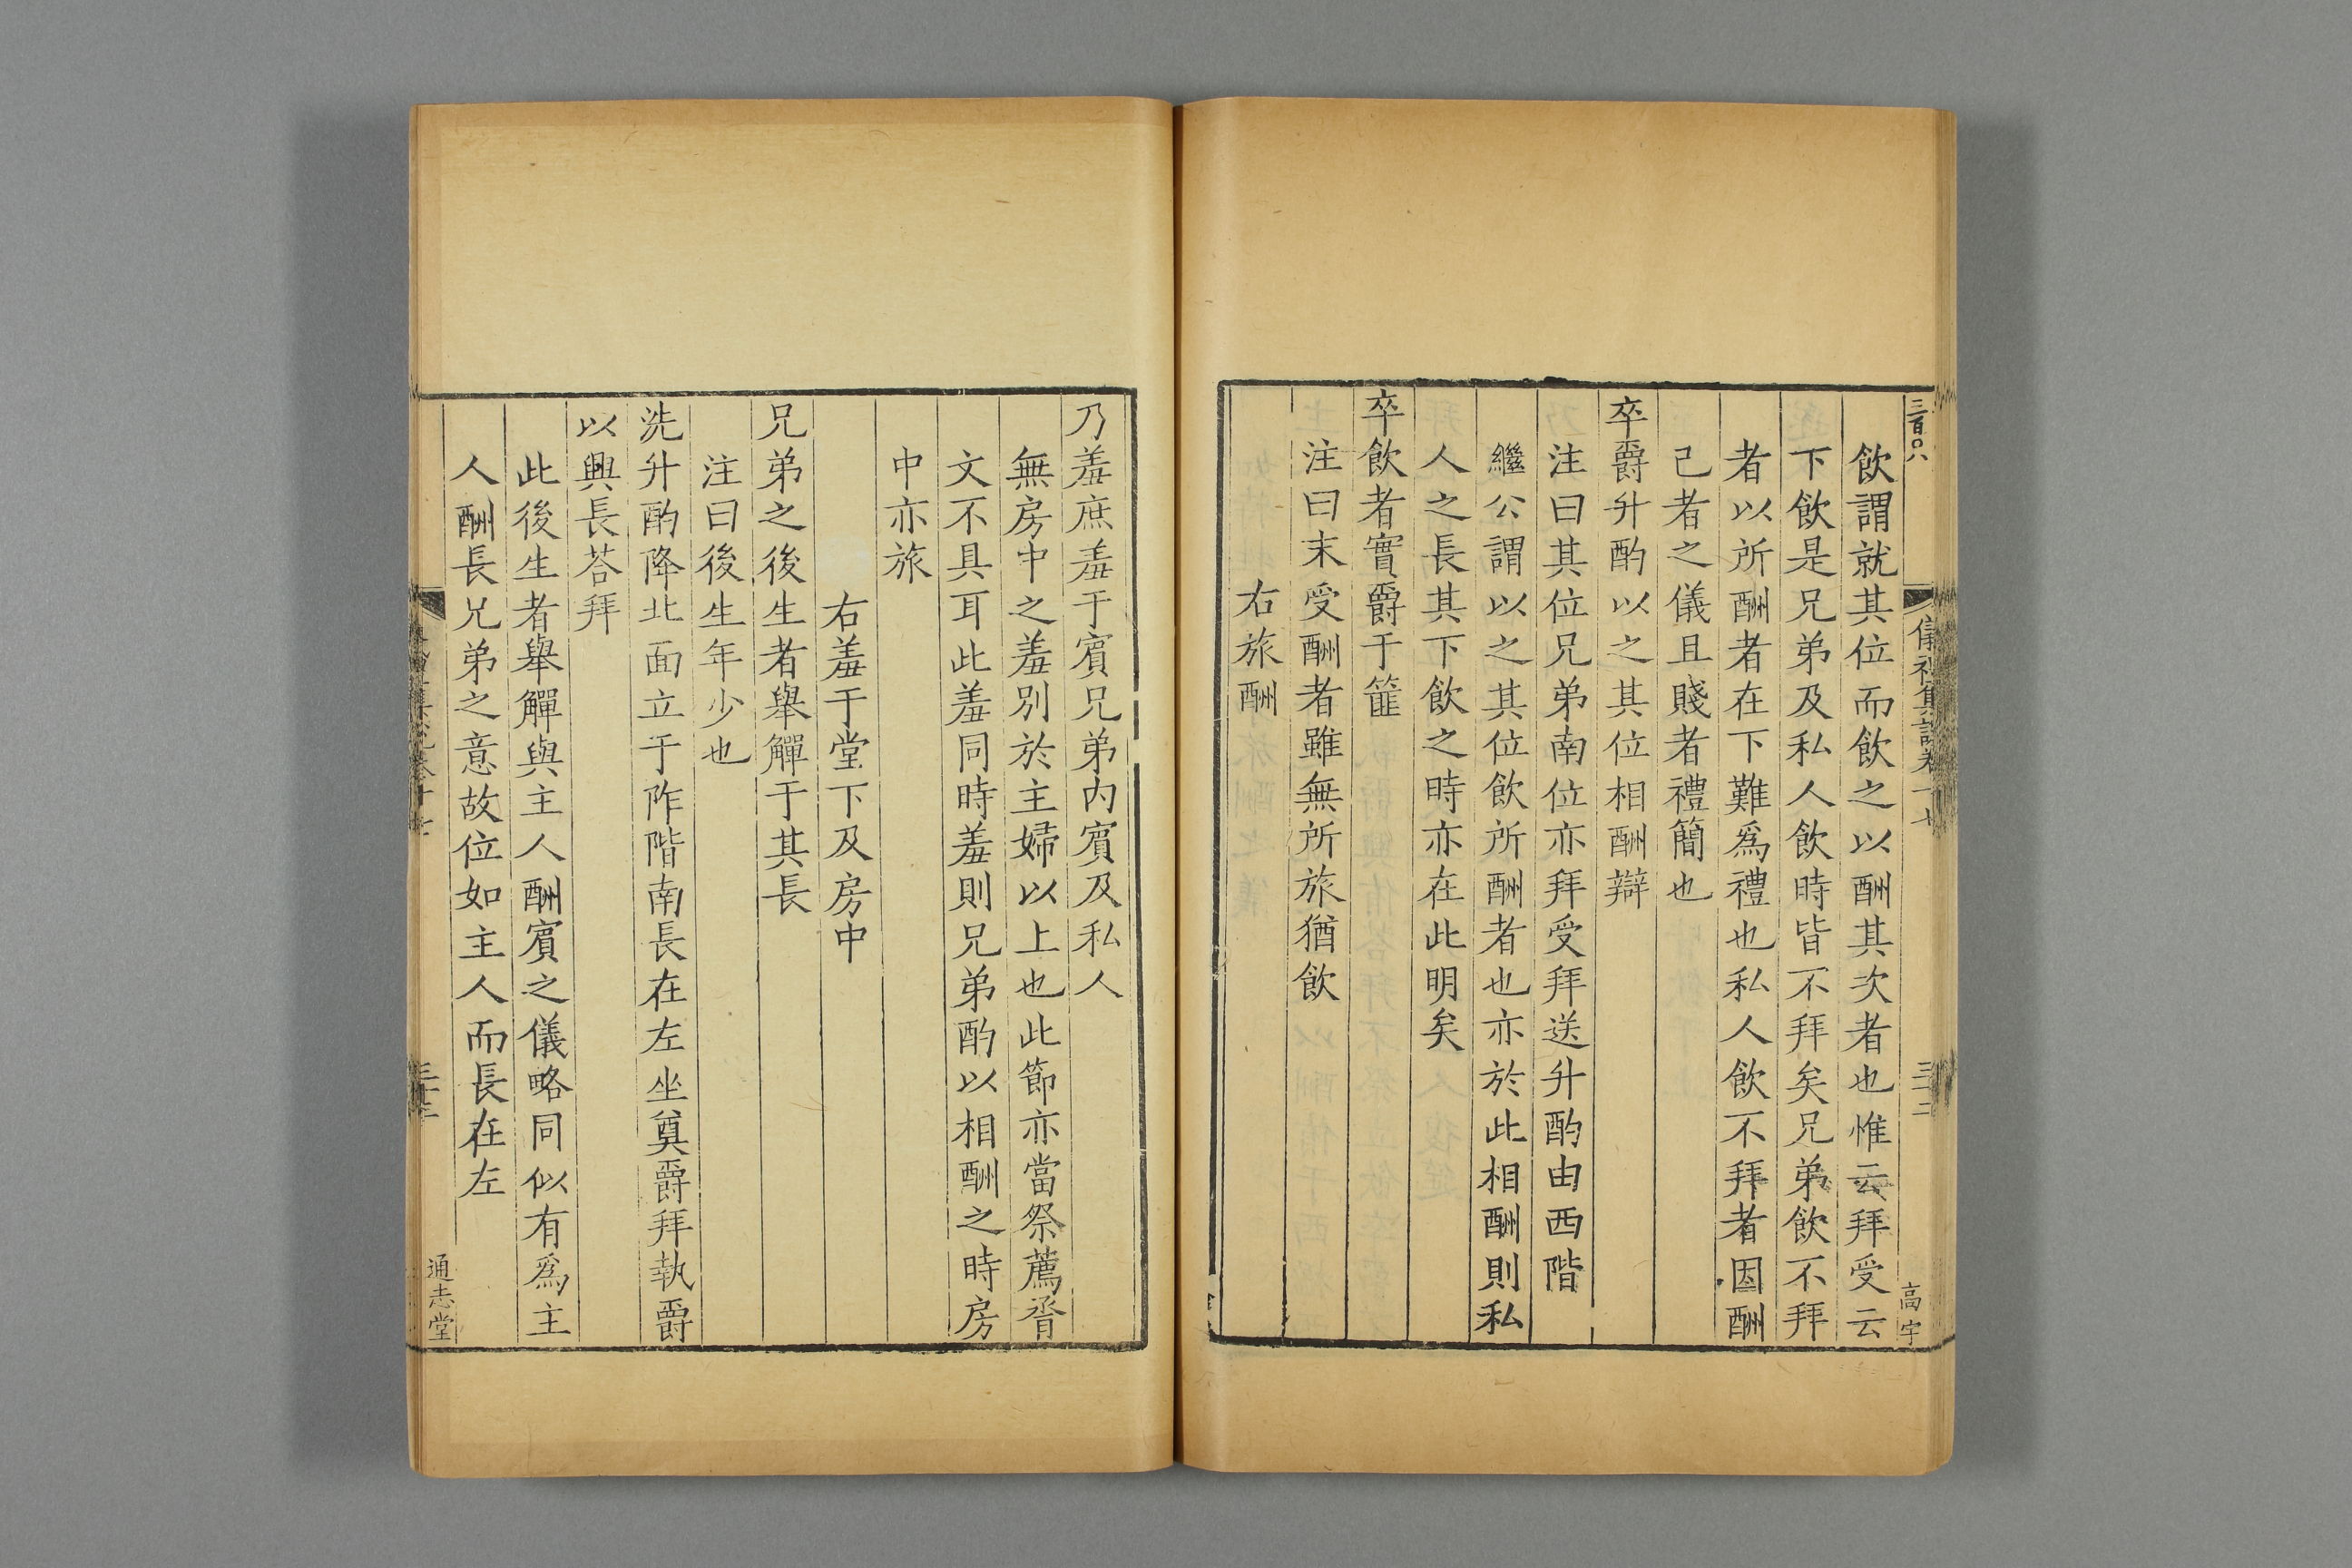 三百〇八
儀禮集說卷十七
三十二
高宇
飲謂就其位而飲之以酬其次者也惟云拜受云
下飲是兄弟及私人飲時皆不拜矣兄弟飲不拜
者以所酬者在下難爲禮也私人飲不拜者因酬
己者之儀且賤者禮簡也
卒爵升酌以之其位相酬辯
注曰其位兄弟南位亦拜受拜送升酌由西階
繼公謂以之其位飲所酬者也亦於此相酬則私
人之長其下飲之時亦在此明矣
卒飲者實爵于篚
注曰末受酬者雖無所旅猶飲
右旅酬
乃羞庶羞于賓兄弟內賓及私人
無房中之羞別於主婦以上也此節亦當祭薦脀
文不具耳此羞同時羞則兄弟酌以相酬之時房
中亦旅
右羞于堂下及房中
兄弟之後生者舉觶于其長
注曰後生年少也
洗升酌降北面立于阼階南長在左坐奠爵拜執爵
以興長荅拜
此後生者舉觶與主人酬賓之儀略同似有爲主
人酬長兄弟之意故位如主人而長在左
通志堂